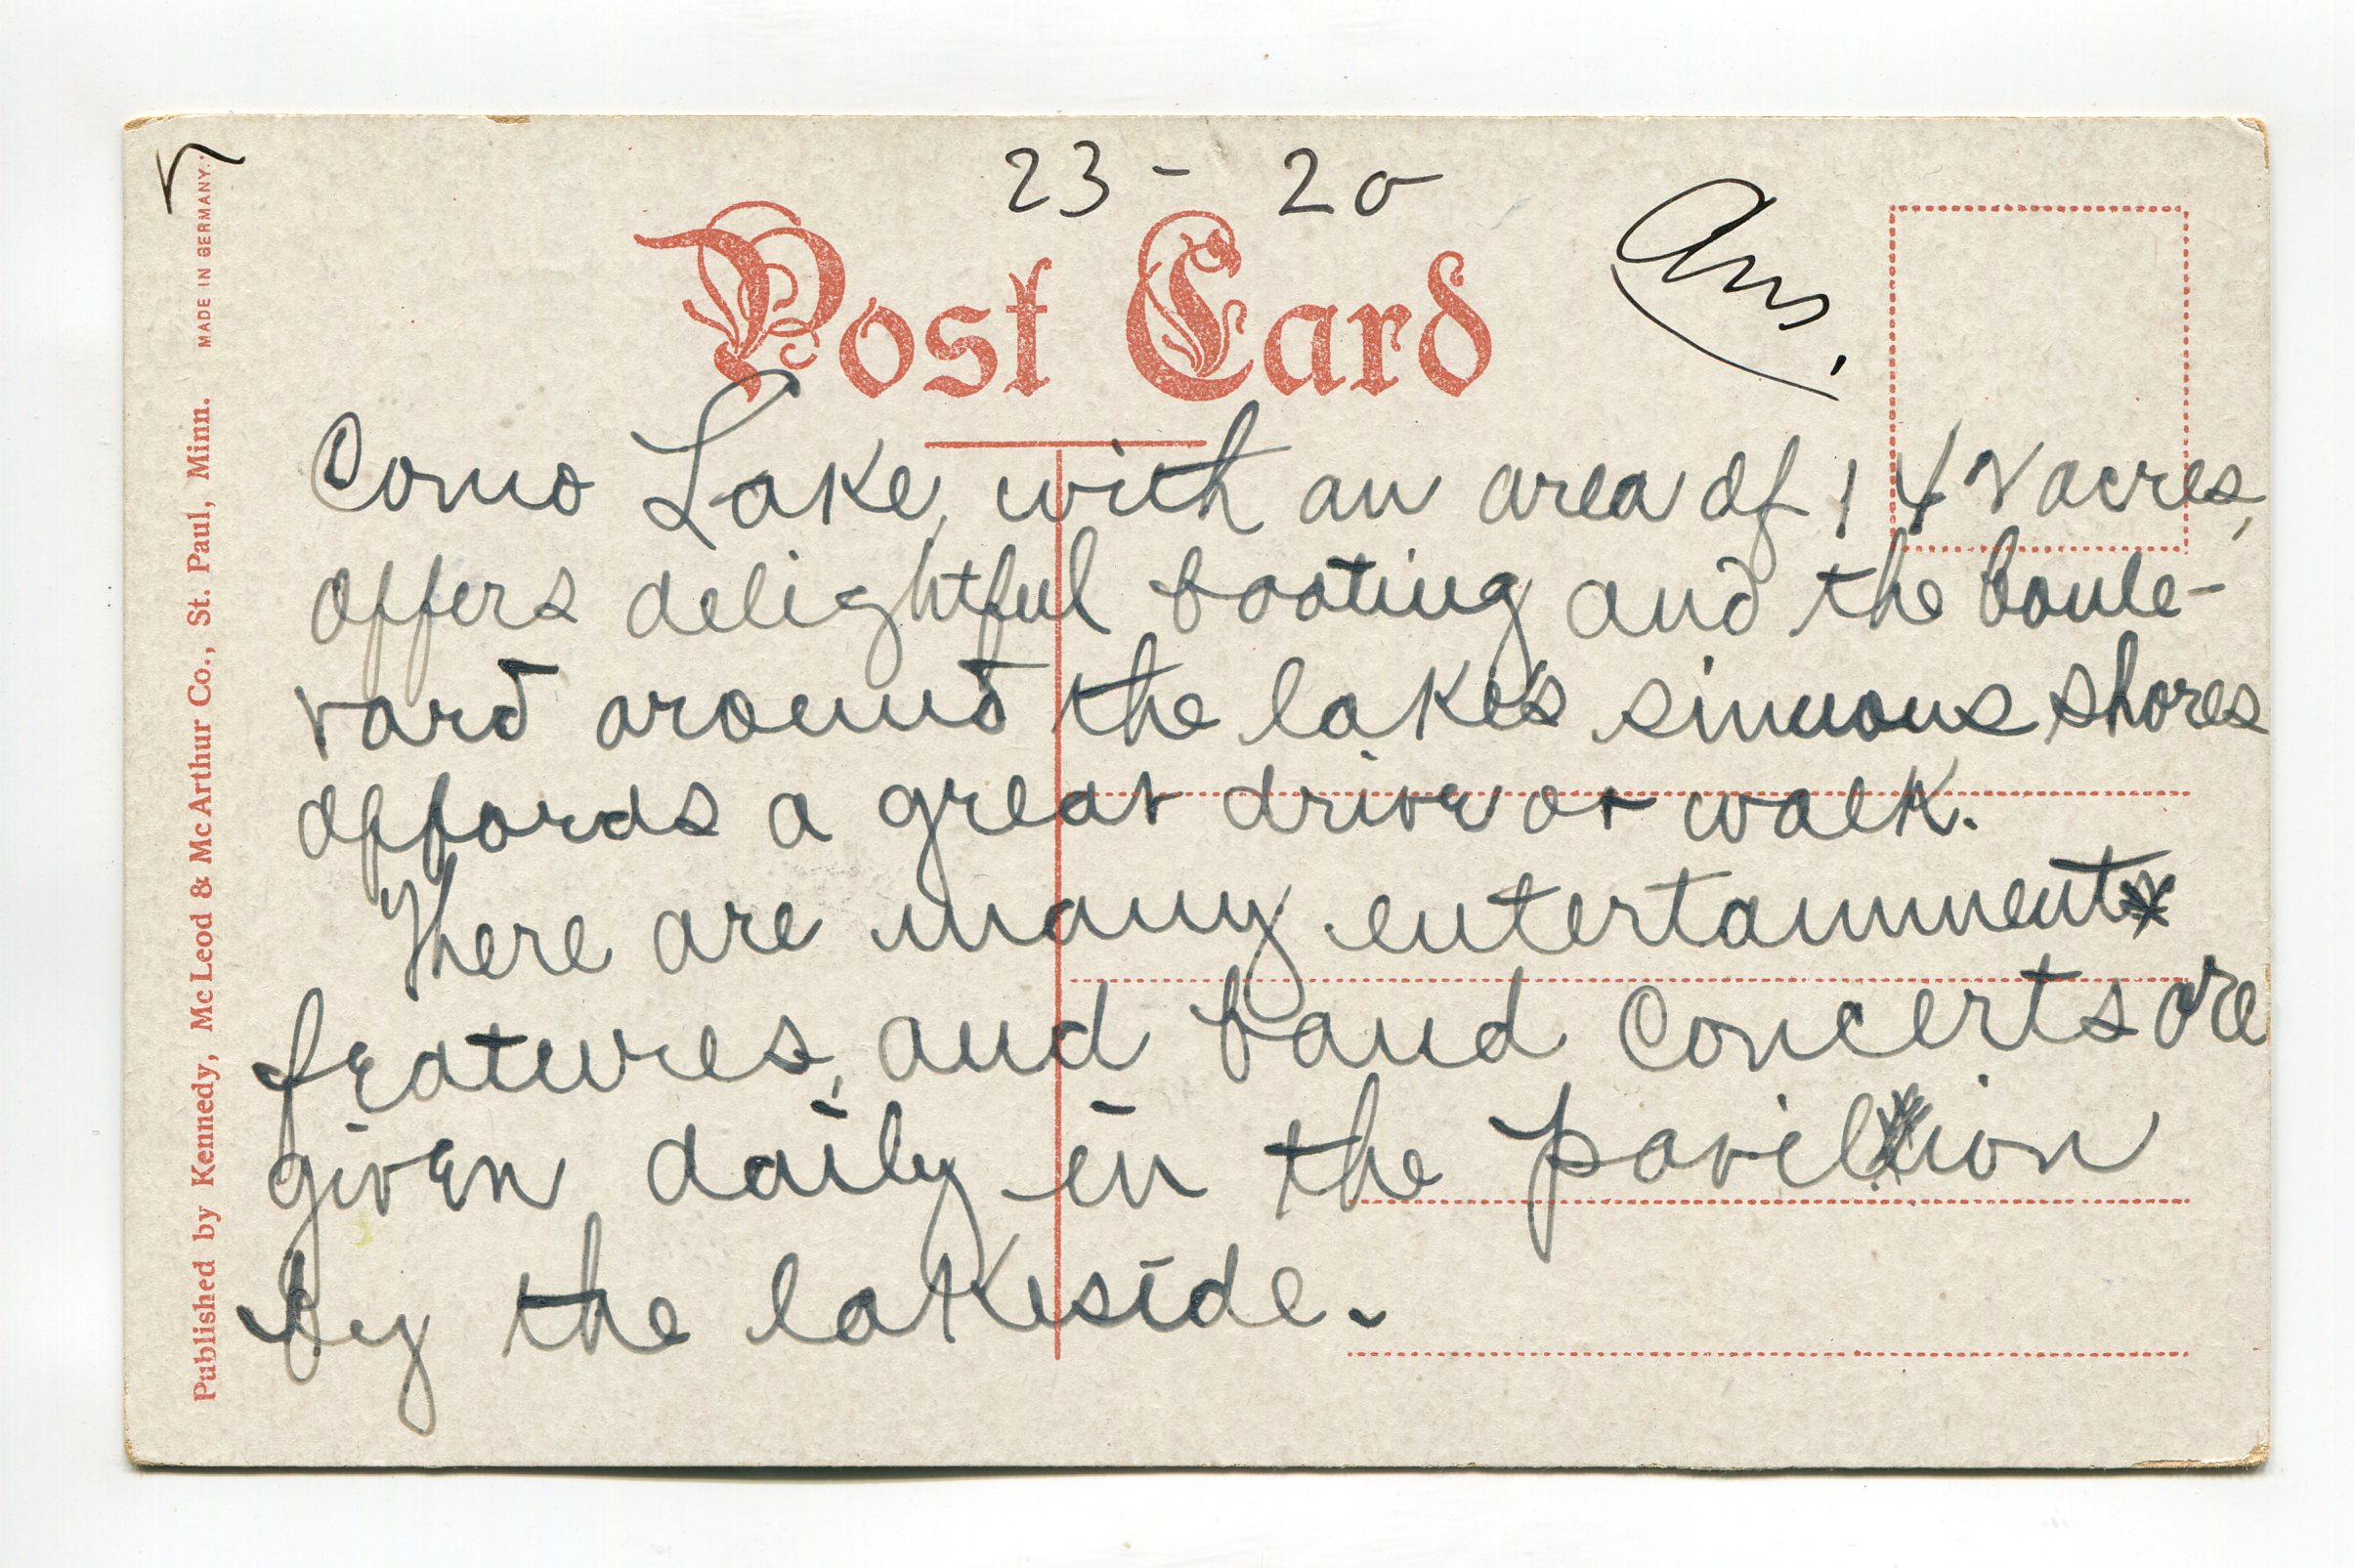 23 - 20
Ans.
Post Card
Como Lake, with an area of 142 acres,
offers delightful boating and the boule-
vard around the lake's sinuous shores
affords a great drive or walk.
There are many entertainment
features, and band concerts are
given daily in the pavilion
by the lakeside.
Published by Kennedy, McLeod & McArthur Co., St. Paul, Minn. MADE IN GERMANY.